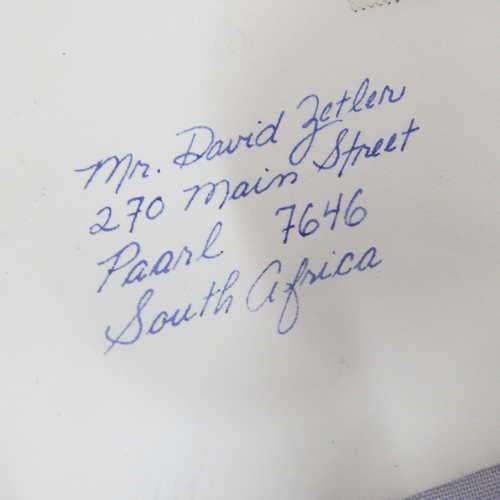 Mr. David Zetler
270 Main Street
Paarl 7646
South Africa